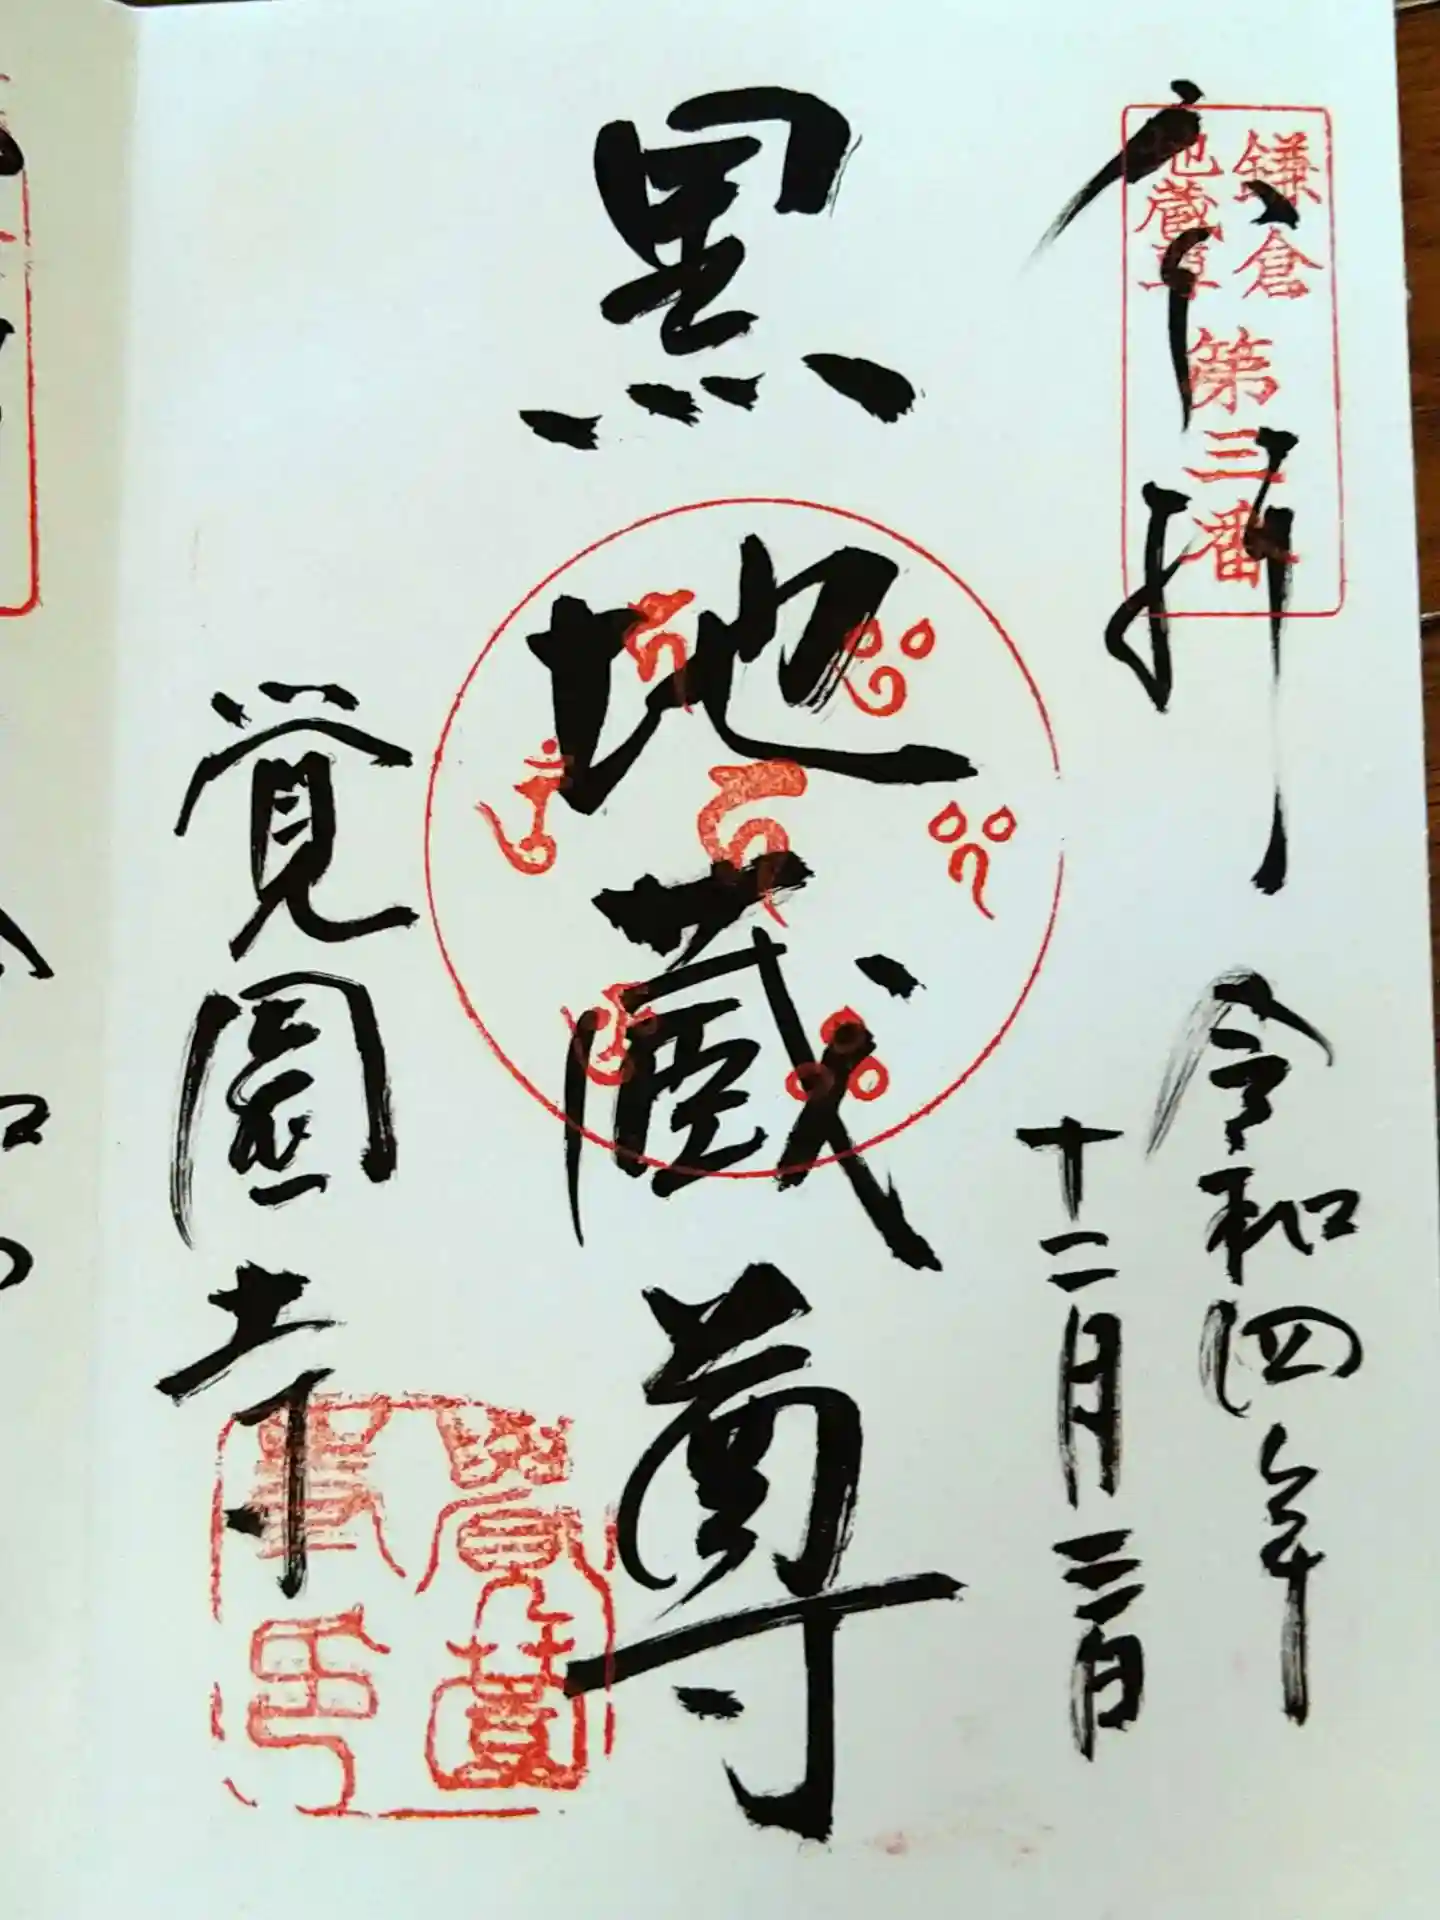 鎌倉
地蔵尊
第三番
奉拝
令和四年
十二月三日
黒地蔵尊
覚園寺